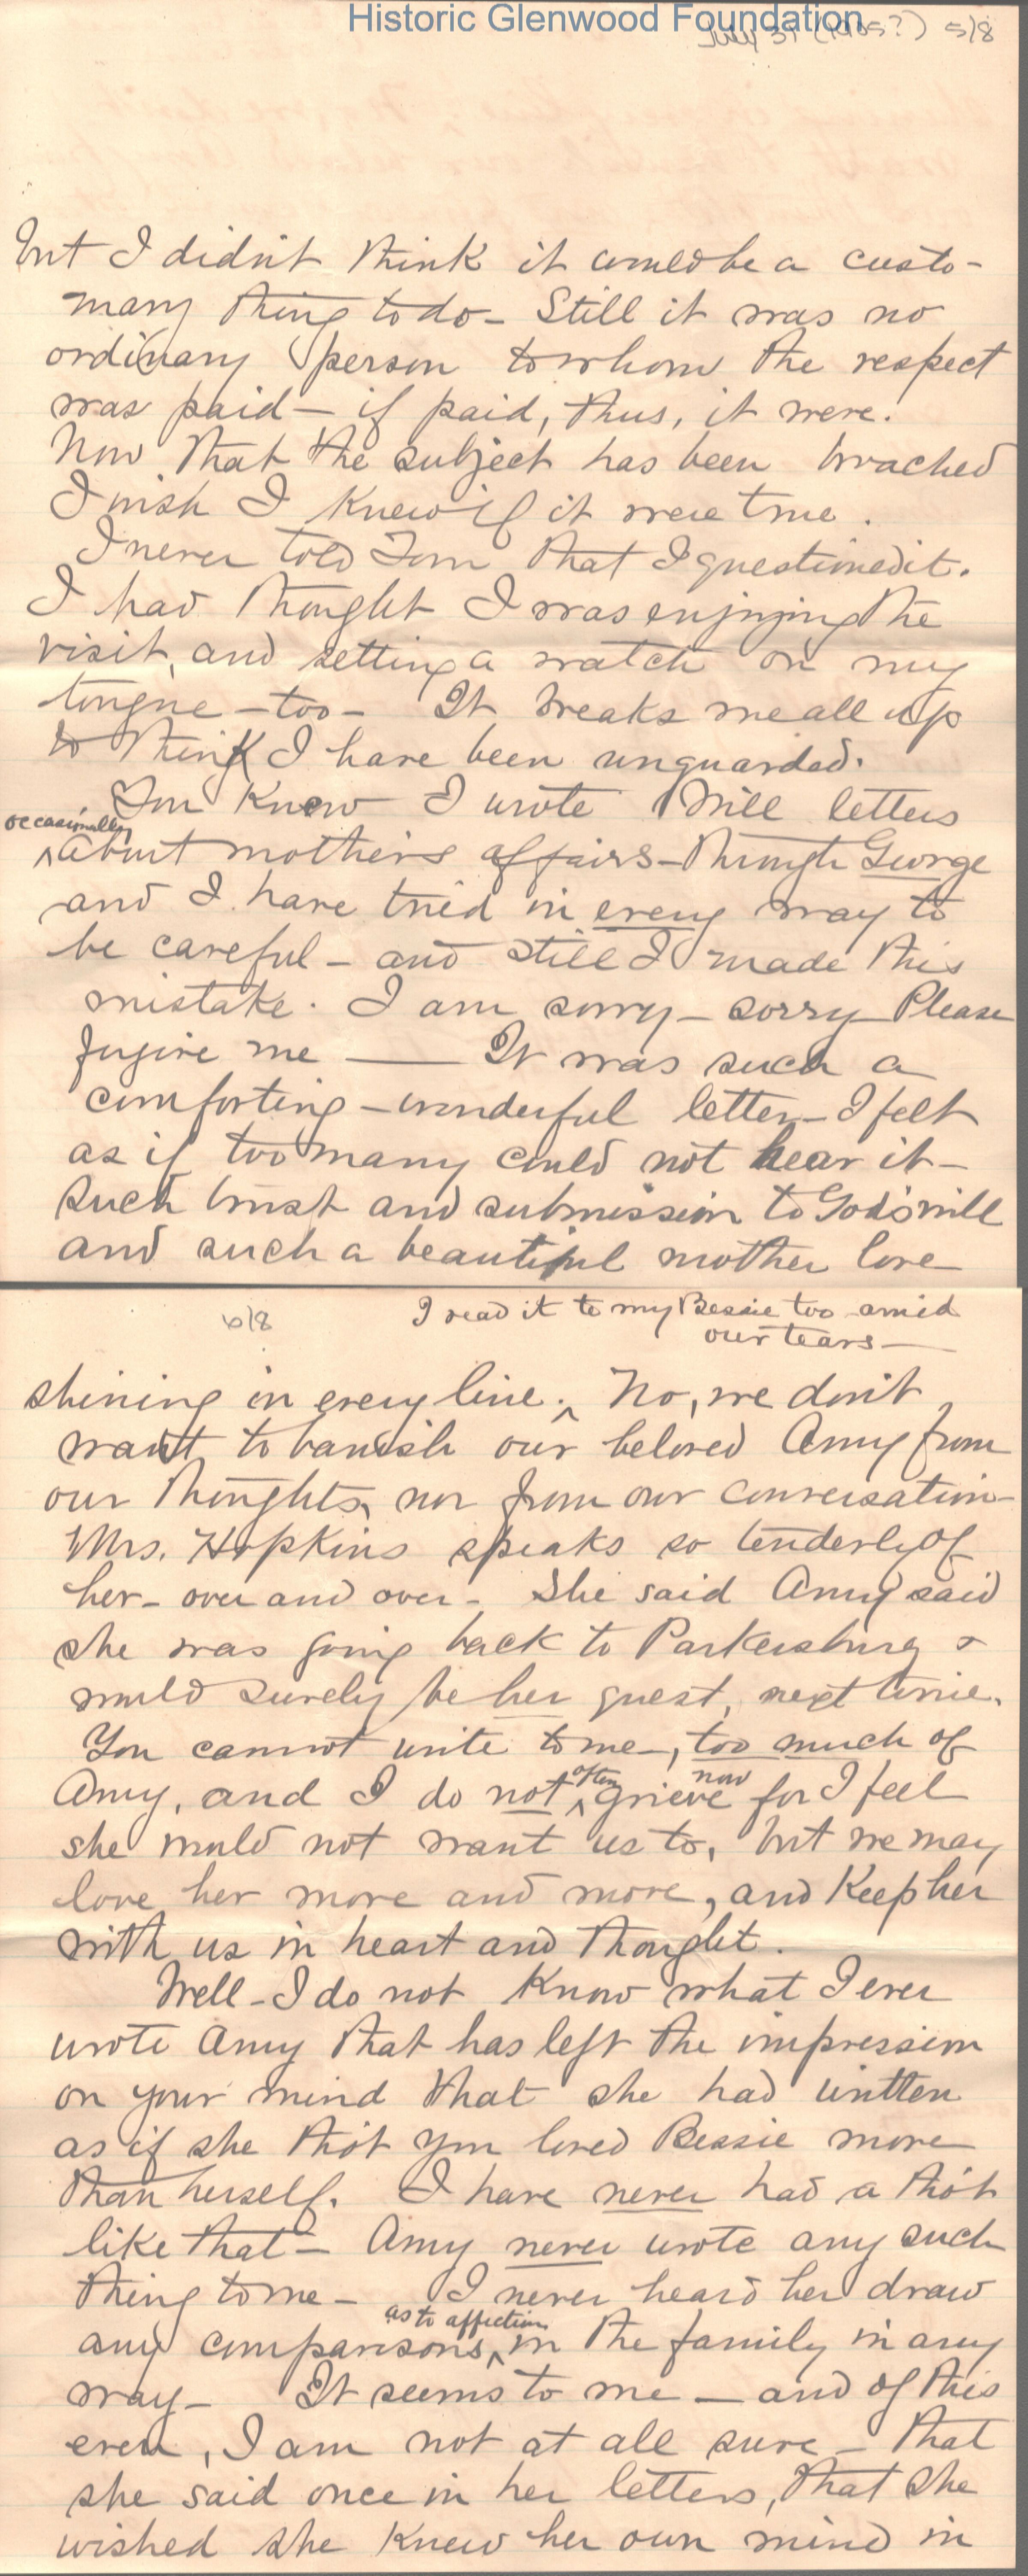 Historic Glenwood Foundation
July 31 (1905?) 5/8
but I didn't think it would be a custo-
mary thing to do - Still it was no
ordinary person to whom the respect
was paid - if paid, thus, it were.
Now that the subject has been broached
I wish I knew if it were true.
I never told Tom that I questioned it.
I had thought I was enjoying the
visit, and setting a watch on my
tongue - too - It breaks me all up
to think I have been unguarded.
You know I wrote Will letters
occasionally
^ about mother's affairs - through George
and I have tried in every way to
be careful - and still I made this
mistake. I am sorry - sorry Please
forgive me — It was such a
comforting - wonderful letter - I felt
as if too many could not hear it -
such trust and submission to God's will
and such a beautiful mother love
6/8
I read it to my Bessie too amid
our tears —
shining in every line. ^ No, we don't
want to banish our beloved Amy from
our thoughts, nor from our conversation -
Mrs. Hopkins speaks so tenderly of
her - over and over - She said Amy said
she was going back to Parkersburg &
would surely be her guest, next time.
You cannot write to me -, too much of
often now
Amy, and I do not ^ grieve for I feel
she would not want us to, but we may
love her more and more, and keep her
with us in heart and thought.
Well - I do not know what I ever
wrote Amy that has left the impression
on your mind that she had written
as if she tho't you loved Bessie more
than herself. I have never had a tho't
like that - Amy never wrote any such
thing to me - I never heard her draw
as to affection
any comparisons, ^ in the family in any
way - It seems to me - and of this
even, I am not at all sure - that
she said once in her letters, that she
wished she knew her own mind in